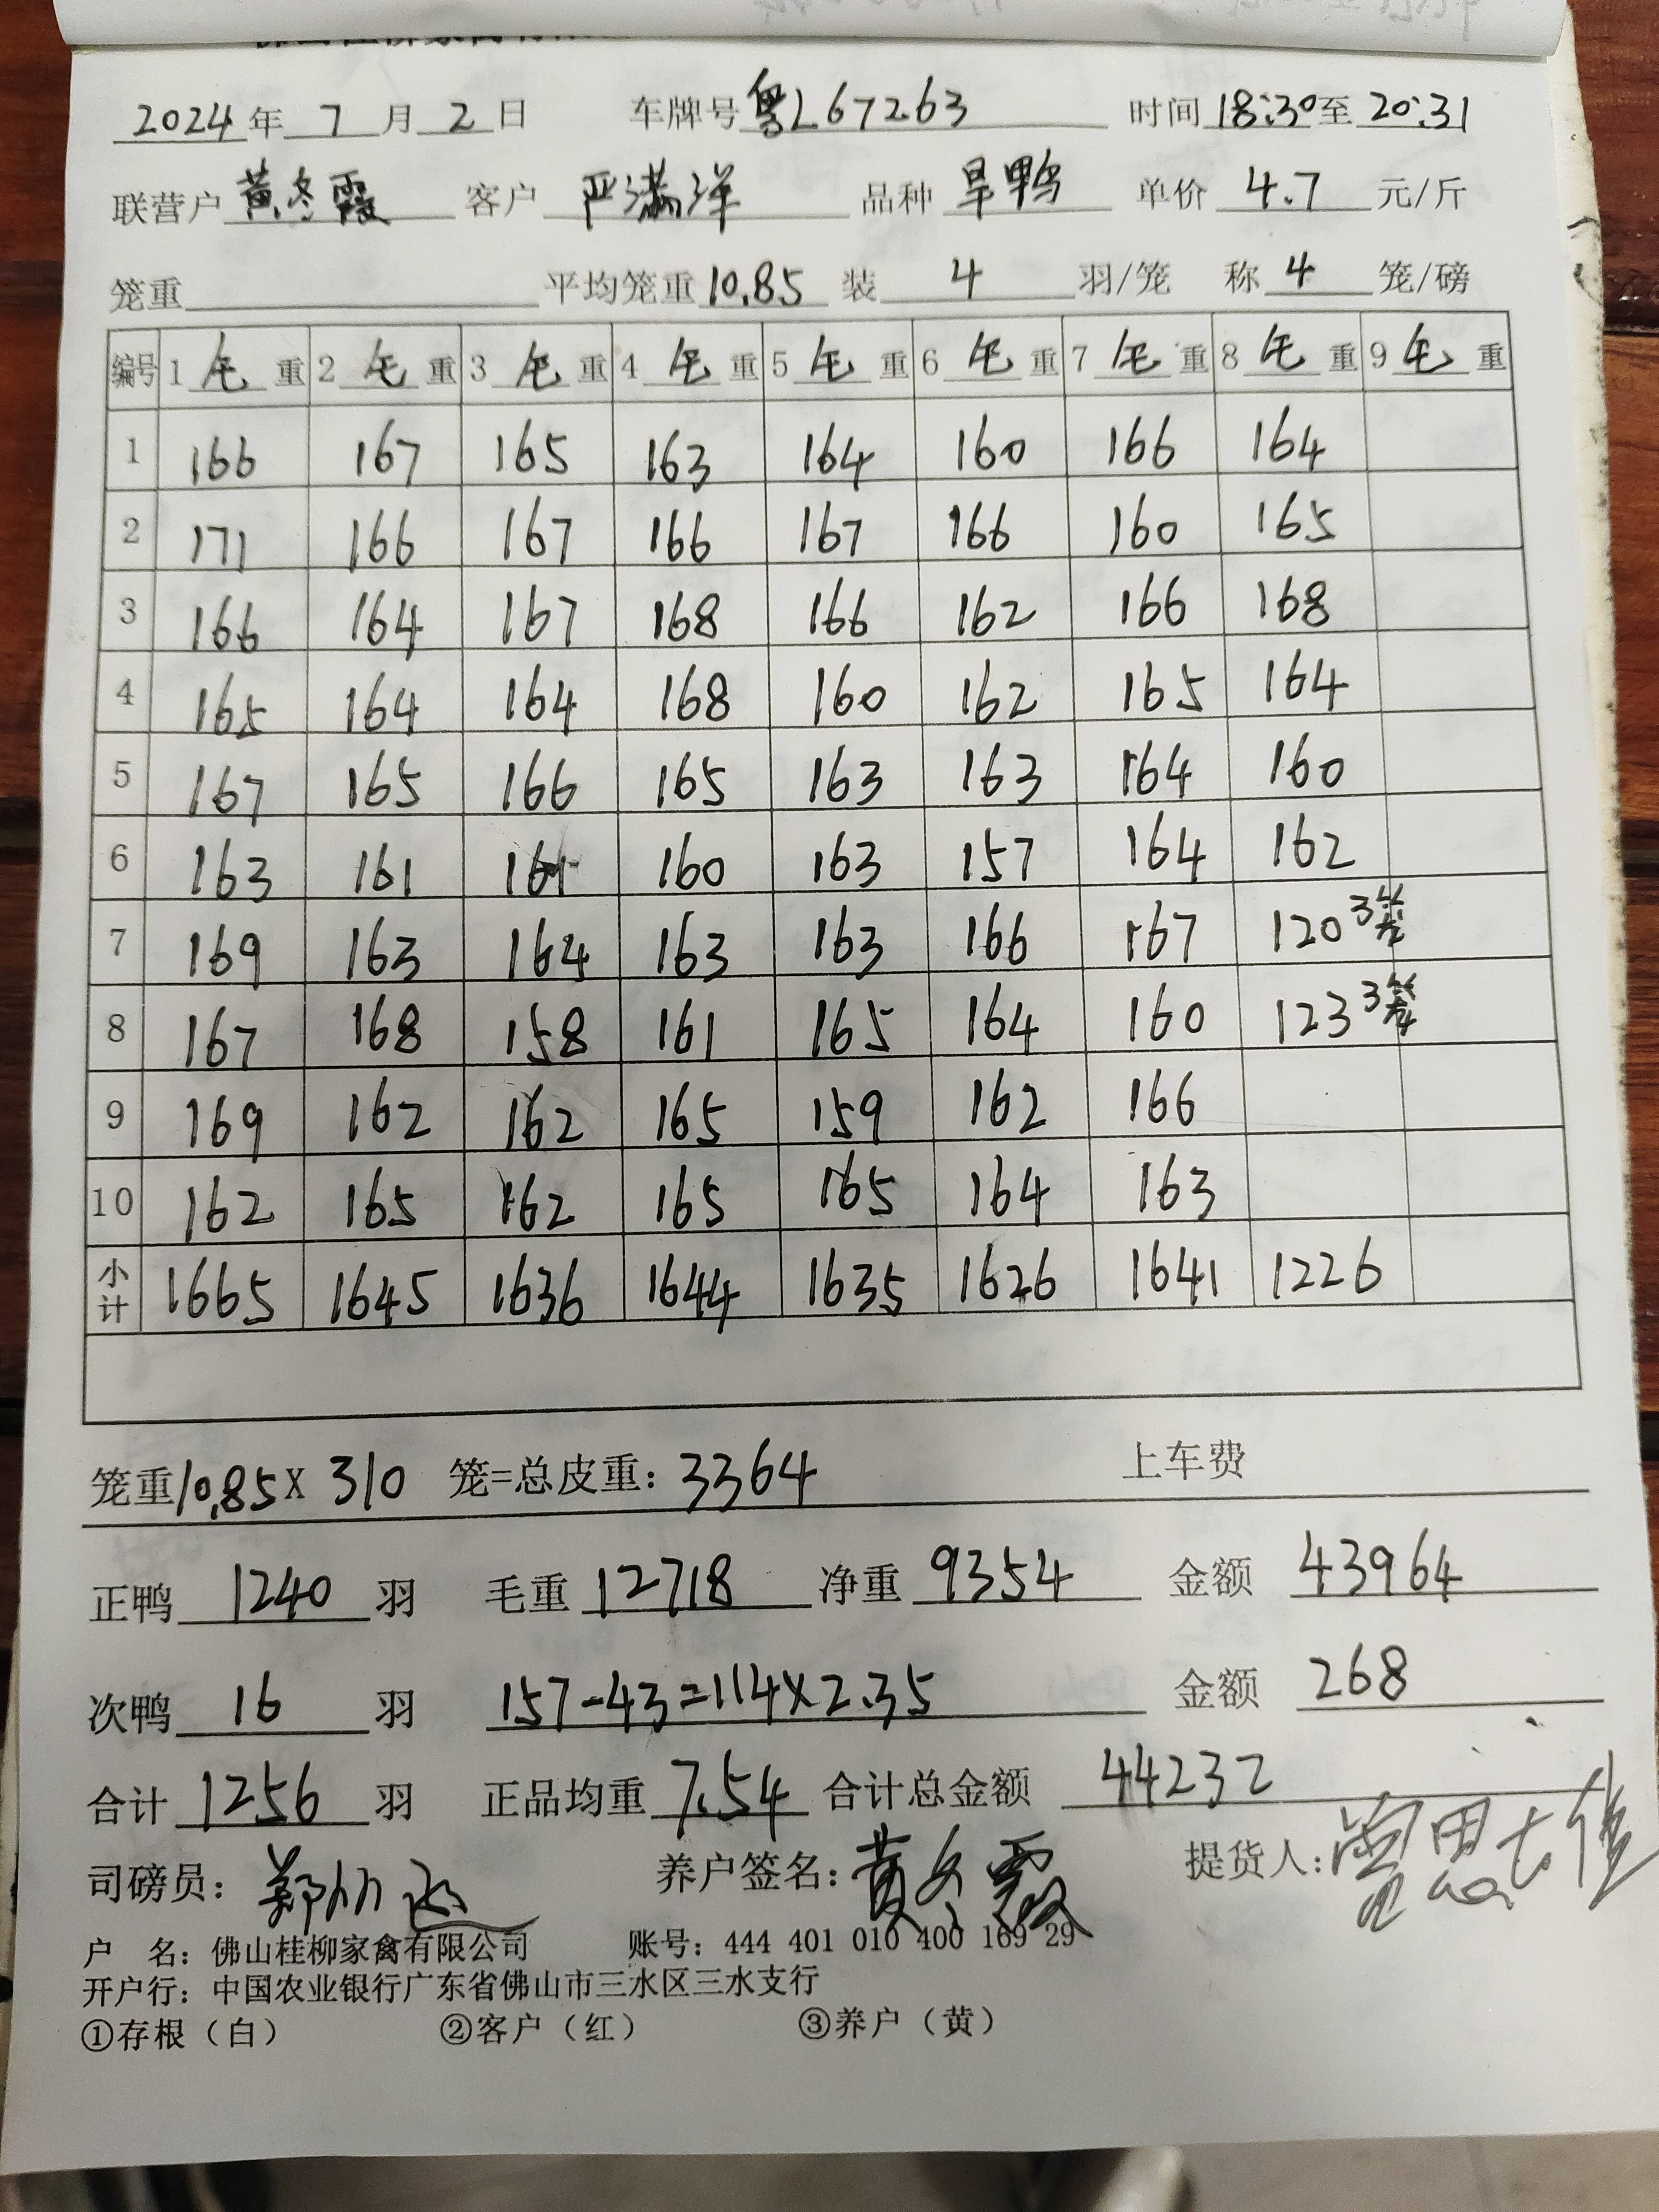 2024年 7 月 2 日 车牌号 粤L67263 时间 18:30 至 20:31
联营户 黄冬霞 客户 严满洋 品种 旱鸭 单价 4.7 元/斤
笼重 平均笼重 10.85 装 4 羽/笼 称 4 笼/磅
编号 1 毛 重 2 毛 重 3 毛 重 4 毛 重 5 毛 重 6 毛 重 7 毛 重 8 毛 重 9 毛 重
1 166 167 165 163 164 160 166 164
2 171 166 167 166 167 166 160 165
3 166 164 167 168 166 162 166 168
4 165 164 164 168 160 162 165 164
5 167 165 166 165 163 163 164 160
6 163 161 161 160 163 157 164 162
7 169 163 164 163 163 166 167 120 3笼
8 167 168 158 161 165 164 160 123 3笼
9 169 162 162 165 159 162 166
10 162 165 162 165 165 164 163
小计 1665 1645 1636 1644 1635 1626 1641 1226
笼重10.85X 310 笼=总皮重: 3364 上车费
正鸭 1240 羽 毛重 12718 净重 9354 金额 43964
次鸭 16 羽 157-43=114X2.35 金额 268
合计 1256 羽 正品均重 7.54 合计总金额 44232
司磅员: 养户签名: 黄冬霞 提货人:
户 名: 佛山桂柳家禽有限公司 账号: 444 401 010 400 169 29
开户行: 中国农业银行广东省佛山市三水区三水支行
①存根(白) ②客户(红) ③养户(黄)